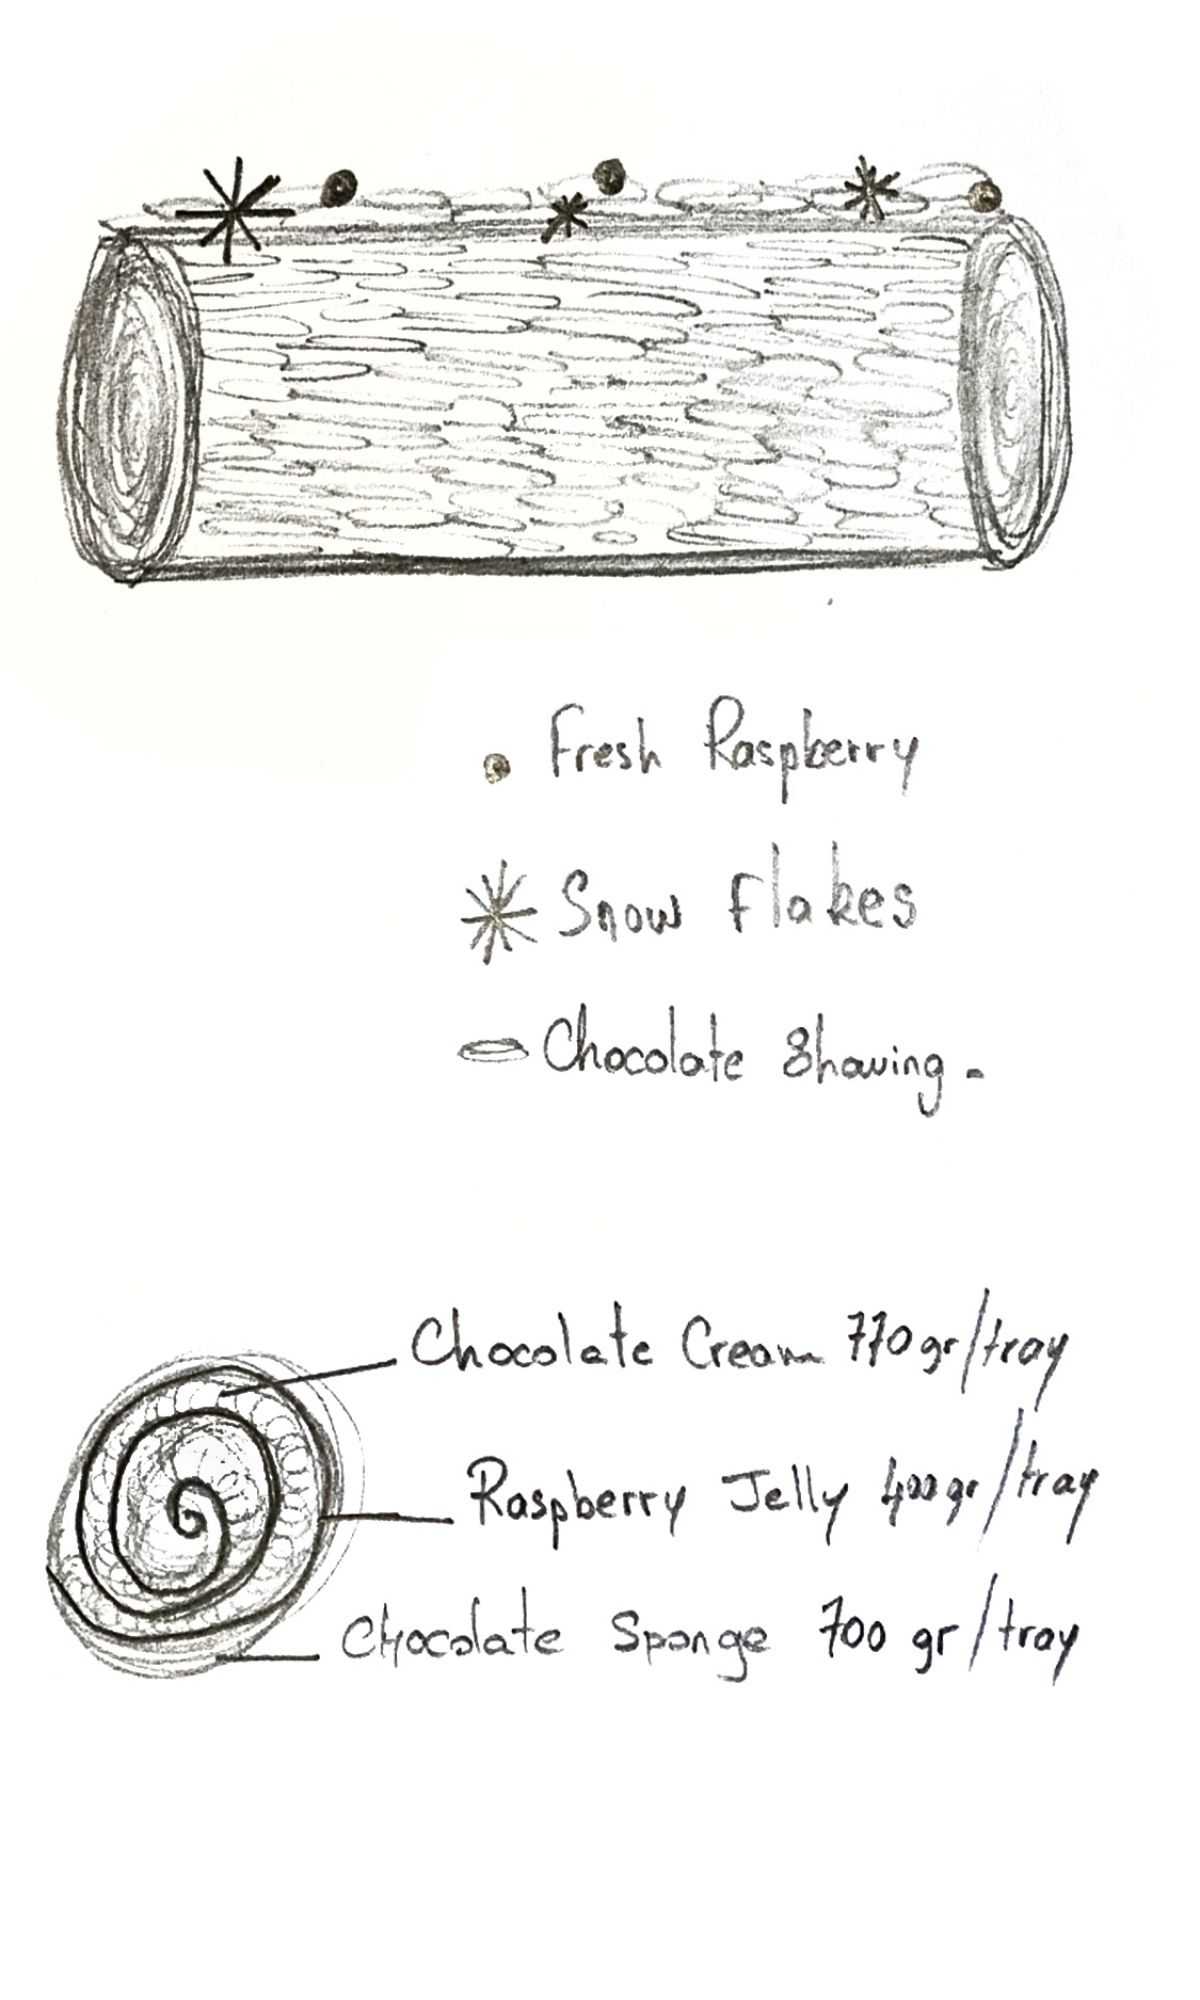 Fresh Raspberry
Snow Flakes
Chocolate Shaving.
Chocolate Cream 770gr/tray
Raspberry Jelly 400gr/tray
Chocolate Sponge 700 gr/tray